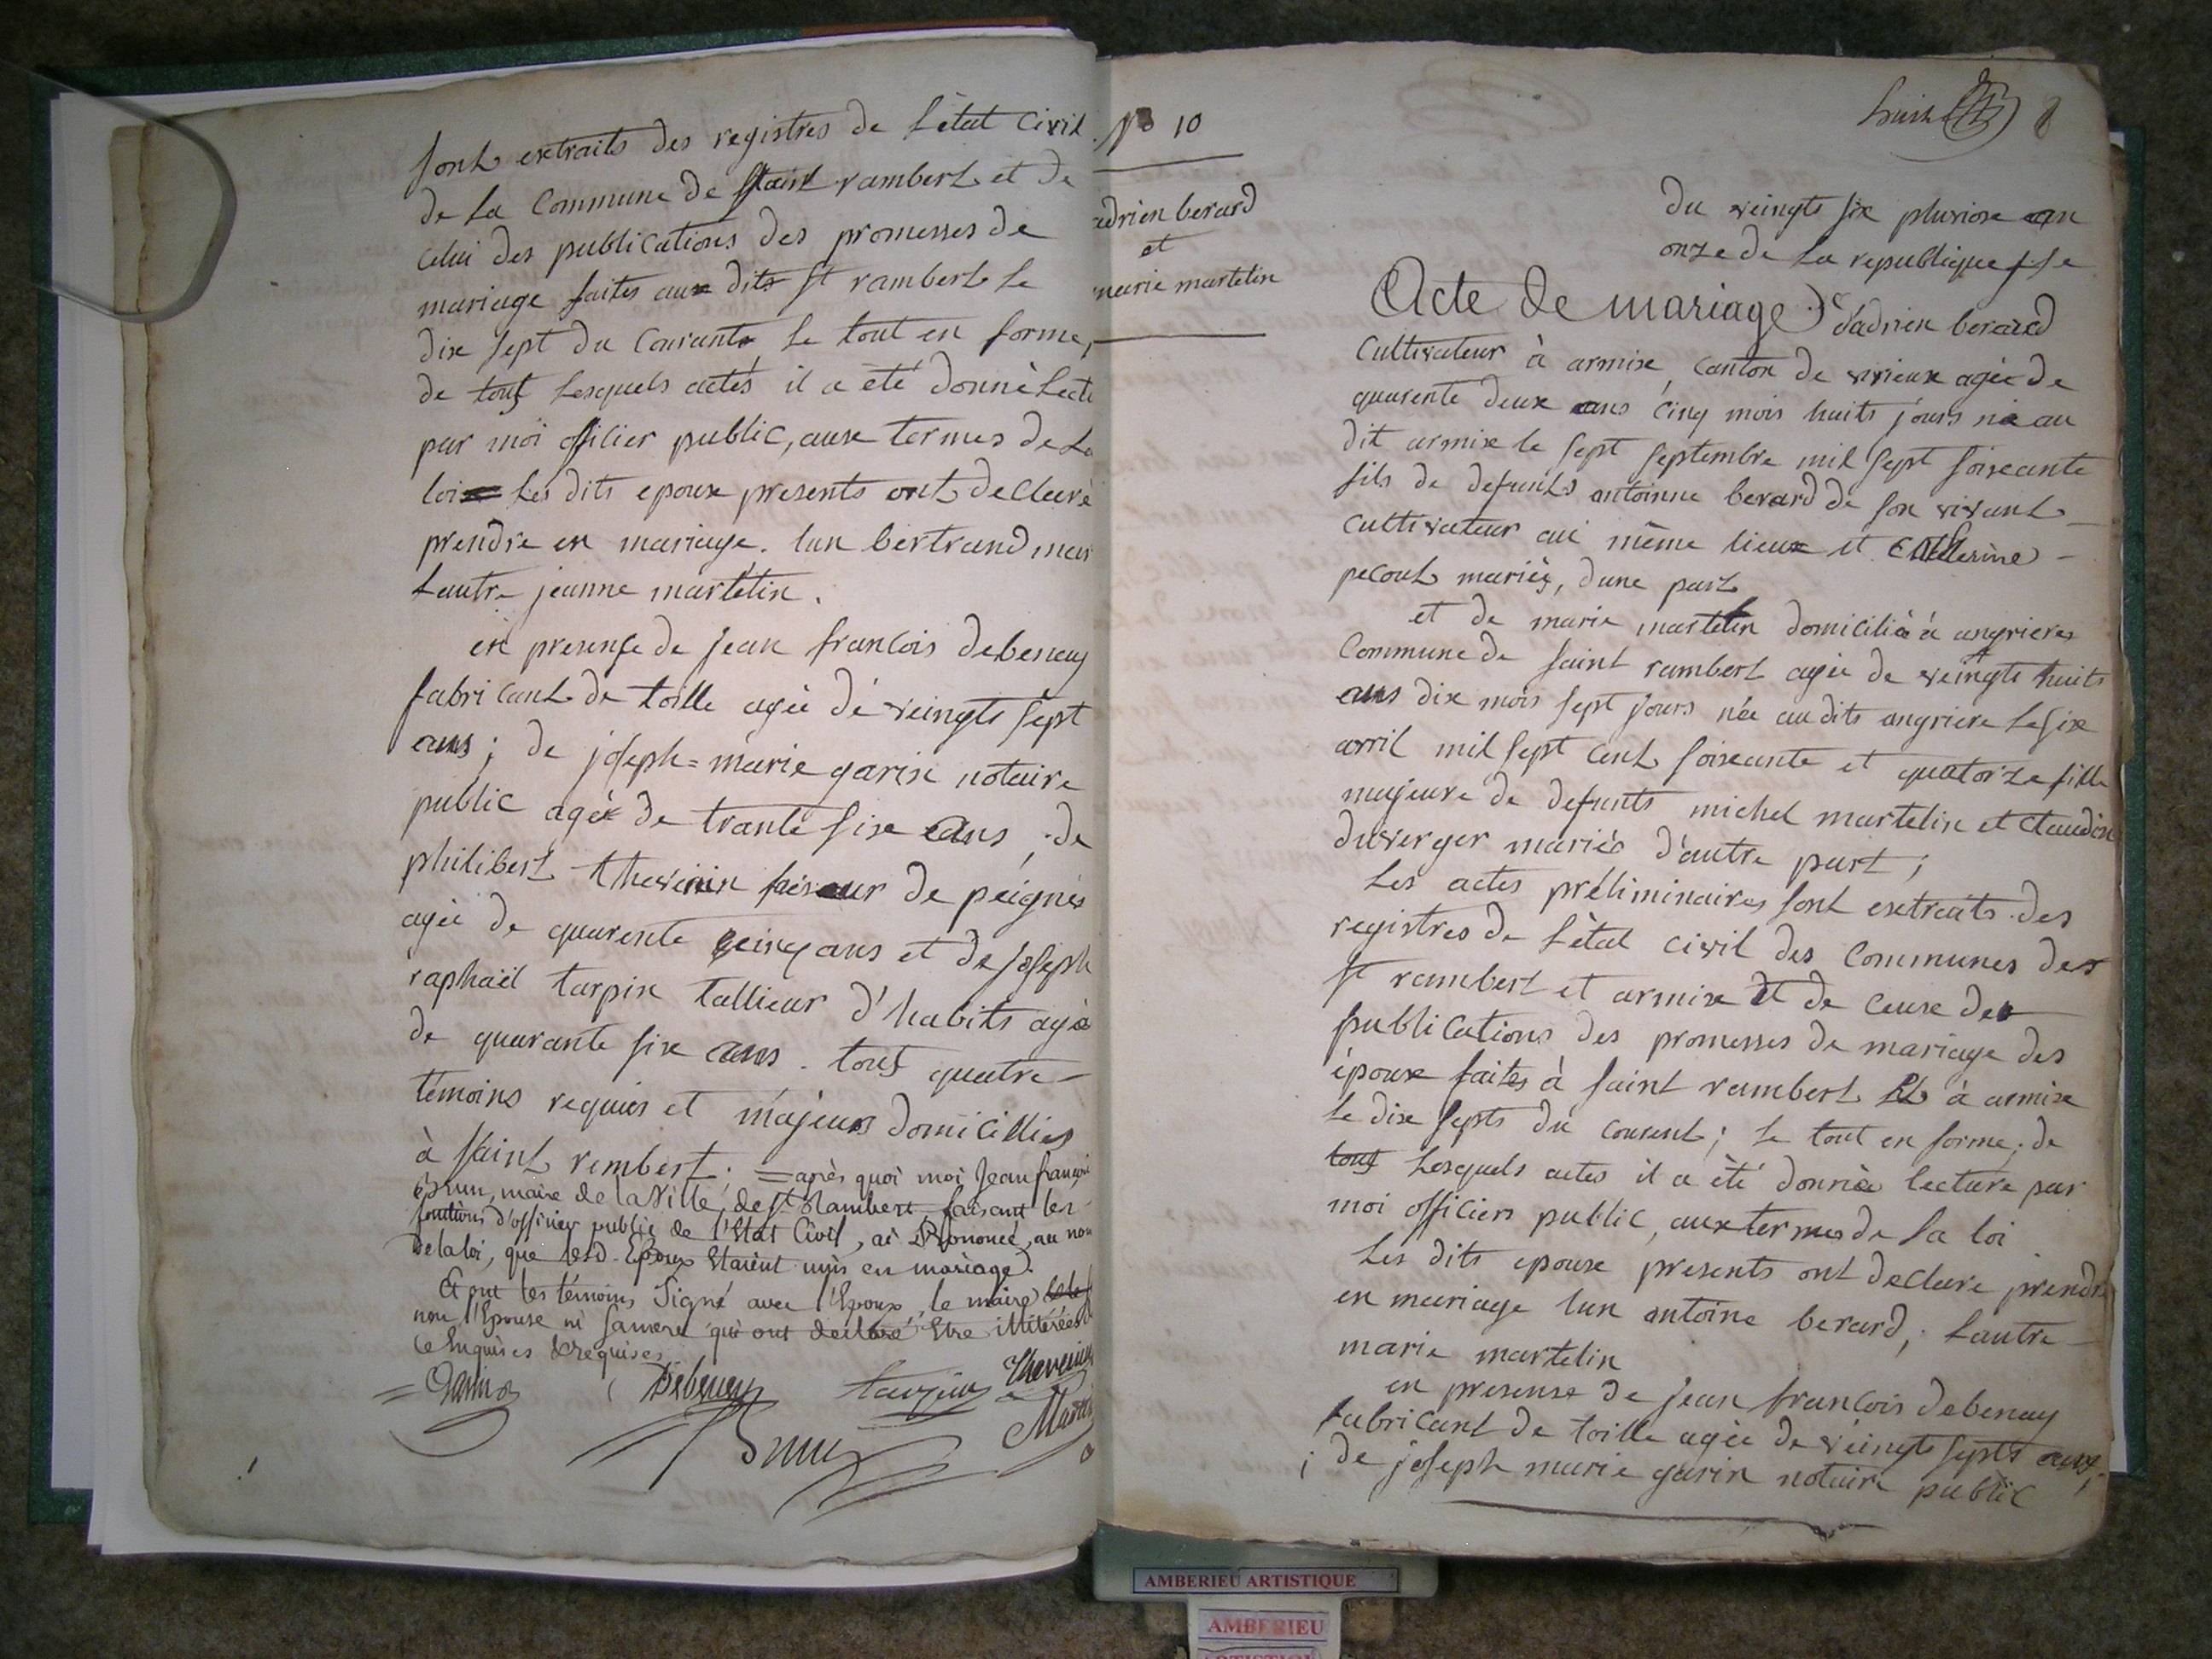 sont extraits des registres de l'état civil
de la Commune de Saint rambert et de
celui des publications des promesses de
mariage faites aux dits St rambert le
dix sept du Courant, le tout en forme,
de tous lesquels actés il a été donnè Lect
par moi officier public, aux termes de La
loi Les dits epoux presents ont declaré
prendre en mariage. lun bertrand mar
Lautre jeanne martelin.
en presense de jean francois debenay
fabricant de toille agée de veingts sept
ans; de joseph=marie garin notaire
public agée de trante six ans, de
philibert thevenin faiseur de peignes
agée de quarente cinq ans et de joseph
raphaël tarpin tallieur d'habits agée
de quarante six ans. tous quatre
témoins requies et majeurs domicilliés
à saint rembert; = après quoi moi Jean françoi
Brun, maire de la Ville de St Rambert faisant les
fonctions d'officier public de l'Etat Civil, ai Prononcé, au nom
de la loi, que lesd. Epoux Etaient unis en mariage.
Et ont les témoins Signé avec l'Epoux, le maire
non l'Epouse ni Samere qui ont declaré Etre illiterées
Enquises & requises
= Garin Debenay tarpin Thevenin
Brun Martin
No 10
adrien berard
et
marie martelin
huit 8
du veingts six pluviose an
onze de la republique f.se
Acte de mariage d'adrien berard
Cultivateur à armix, canton de virieux agée de
quarente deux ans cinq mois huits jours né au
dit armix le sept septembre mil sept soixante
fils de defunts antoinne berard de son vivant
cultivateur aui même lieux et Catherine
pecout mariés, dune part
et de marie martelin domicilié à angrieres
Commune de saint rambert agée de veingts huits
ans dix mois sept jours née au dits angriere le six
avril mil sept cent soixante et quatorze fille
majeure de defunts michel martelin et claudine
duverger mariés d'autre part;
Les actes préliminaires sont extraits des
registres de L'état civil des Communes des
st rambert et armix et de ceux des
publications des promesses de mariage des
époux faites à saint rambert et à armix
le dix septs du courent; le tout en forme; de
tous Lesquels actes il a été donnée lecture par
moi officiers public, aux termes de la loi
Les dits epoux presents ont declare prendre
en mariage lun antoine berard; Lautre
marie martelin
en presense de jean francois debenay
fabricant de toille agée de veingts septs ans;
; de joseph marie garin notaire public
AMBERIEU ARTISTIQUE
AMBERIEU
ARTISTIQUE